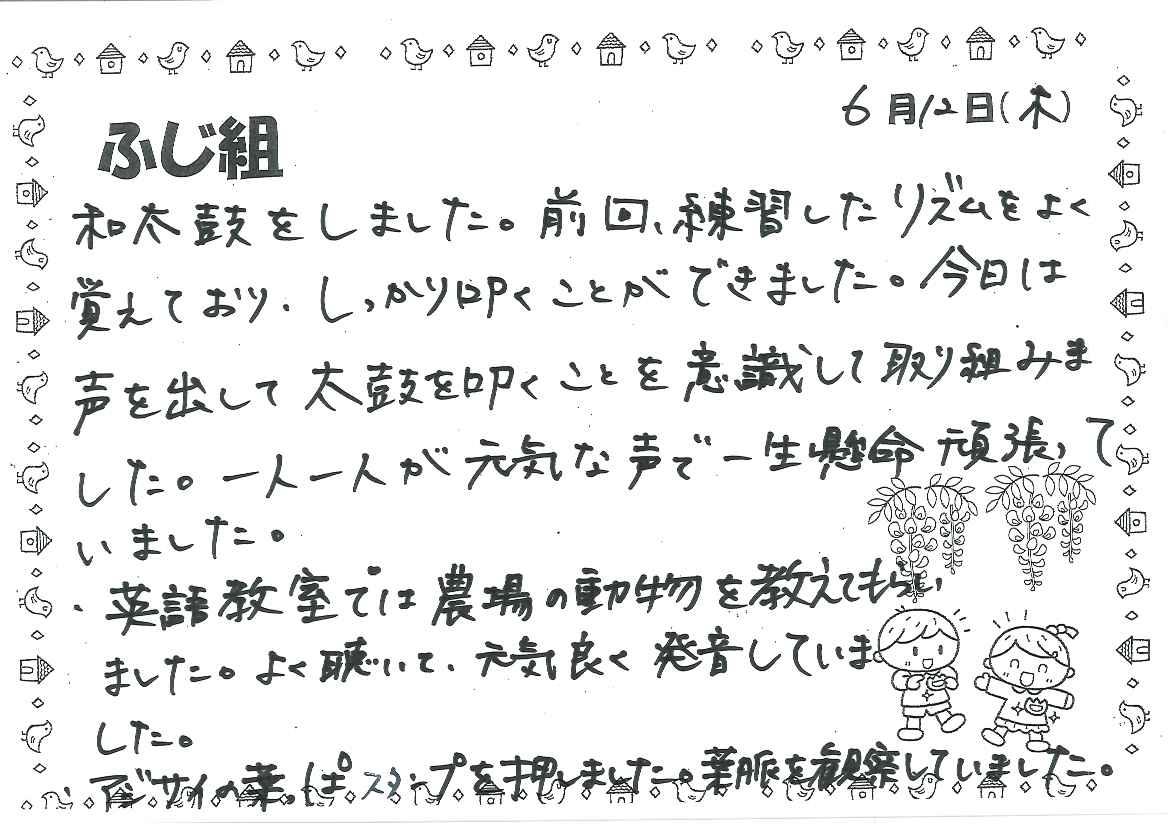 6月12日(木)
ふじ組
和太鼓をしました。前回、練習したリズムをよく
覚えており、しっかり叩くことができました。今日は
声を出して太鼓を叩くことを意識して取り組みま
した。一人一人が元気な声で一生懸命頑張って
いました。
・英語教室では農場の動物を教えてもらい
ました。よく聴いて、元気良く発音していま
した。
・アジサイの葉っぱスタンプを押しました。葉脈を観察していました。